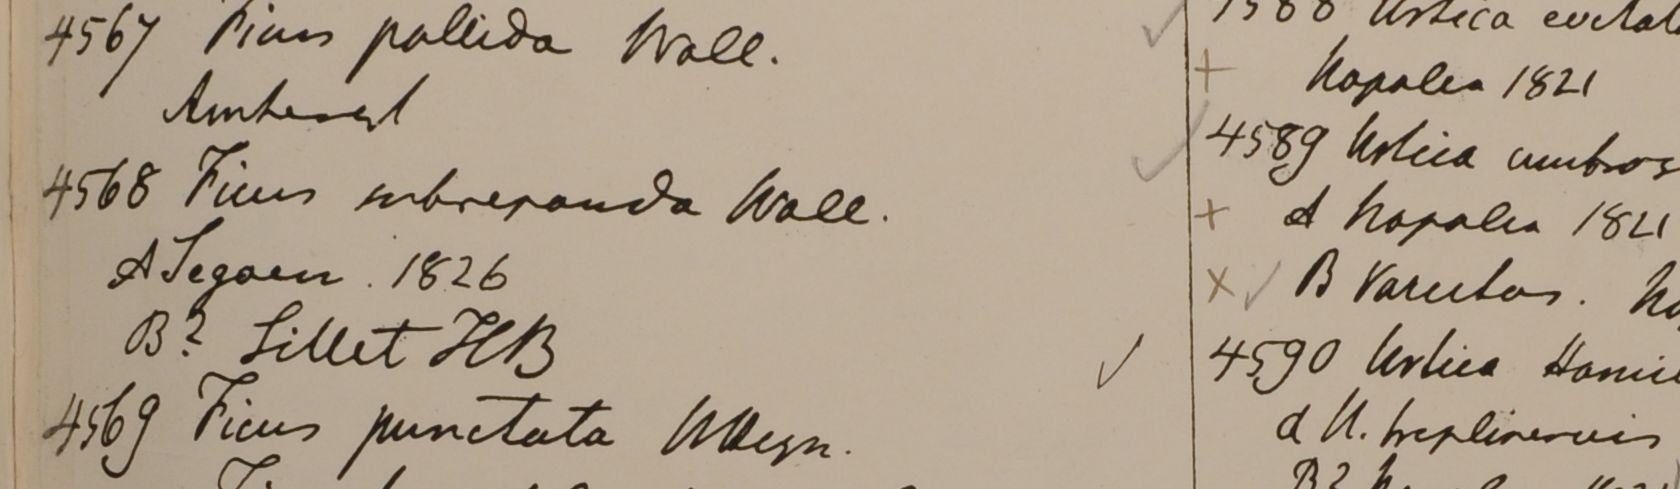 4567 Ficus pallida Wall.
Amherst
4568 Ficus subrepanda Wall.
A Segaen. 1826
B? Sillet HB
4569 Ficus punctata
4588 Urtica
Napalia 1821
4589 Urtica umbros
A Napalia 1821
B Varietas.
4590 Urtica Hamil
A U. treplinervis
B?